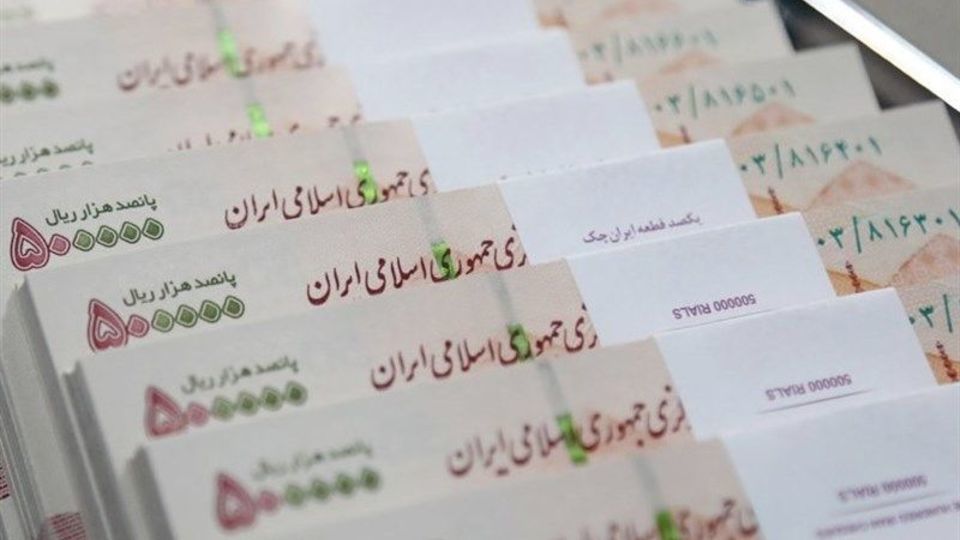 جمهوری اسلامی ایران
۰۳/۸۱۶۶۰۱
۰۳/۸۱۶۵۰۱
پانصد هزار ریال
۵۰۰۰۰۰
جمهوری اسلامی ایران
۰۳/۸۱۶۴۰۱
یکصد قطعه ایران چک
پانصد هزار ریال
۵۰۰۰۰۰
جمهوری اسلامی ایران
۰۳/۸۱۶۳۰۱
500000 RIALS
پانصد هزار ریال
۵۰۰۰۰۰
جمهوری اسلامی ایران
500000 RIALS
پانصد هزار ریال
۵۰۰۰۰۰
جمهوری اسلامی ایران
500000 RIALS